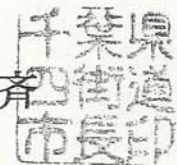 斉
千葉県
四街道
市長印